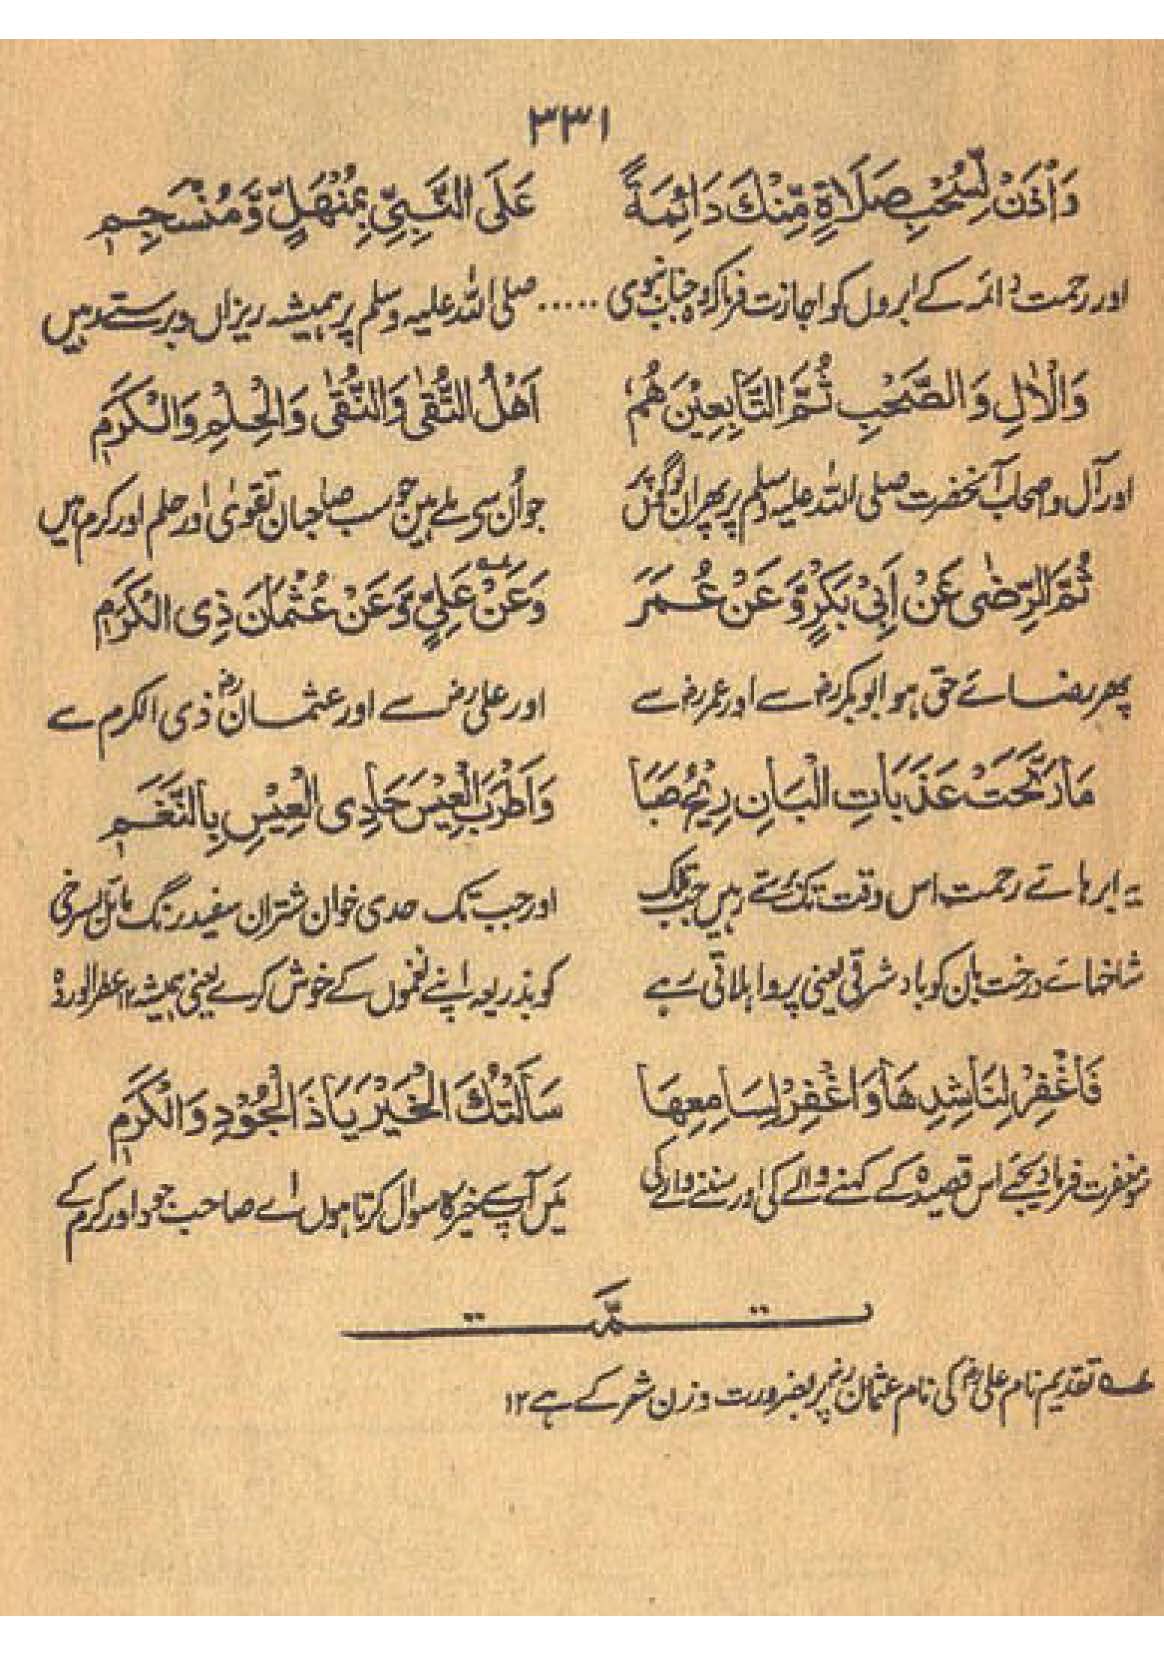 ۳۳۱
وَأْذَنْ لِّسُحْبِ صَلَاةٍ مِّنْكَ دَائِمَةً عَلَى النَّبِيِّ بِمُنْهَلٍّ وَّمُنْسَجِمٖ
اور رحمت دائمہ کے ابرول کو اجازت فرما کہ وہ جناب نبوی ..... صلی اللہ علیہ وسلم پر ہمیشہ ریزاں و برستے رہیں
وَالْاٰلِ وَالصَّحْبِ ثُمَّ التَّابِعِيْنَ هُمْ اَهْلُ التُّقٰى وَالنُّقٰى وَالْحِلْمِ وَالْكَرَمٖ
اور آل و اصحاب آنحضرت صلی اللہ علیہ وسلم پر پھر ان لوگوں پر جو اُن سے ملے ہیں جو سب صاحبان تقویٰ اور حلم اور کرم ہیں
ثُمَّ الرِّضٰى عَنْ اَبِىْ بَكْرٍ وَّ عَنْ عُمَرَ وَعَنْ عَلِيٍّ وَّعَنْ عُثْمَانَ ذِى الْكَرَمٖ
پھر رضائے حق ہو ابوبکر رض سے اور عمر رض سے اور علی رض سے اور عثمان رض ذی الکرم سے
مَا رَنَّحَتْ عَذَبَاتِ الْبَانِ رِيْحُ صَبَا وَاَطْرَبَ الْعِيْسَ حَادِى الْعِيْسِ بِالنَّغَمٖ
یہ ابرہائے رحمت اس وقت تک برستے رہیں جب تلک اور جب تک حدی خوان شتران سفید رنگ مائل بسرخی
شاخہائے درخت بان کو باد شرقی یعنی پروا ہلاتی رہے کو بذریعہ اپنے نغموں کے خوش کرے یعنی ہمیشہ ۱۲ عطر الوردہ
فَاغْفِرْ لِنَاشِدِهَا وَاغْفِرْ لِسَامِعِهَا سَاَلْتُكَ الْخَيْرَ يَا ذَا الْجُوْدِ وَالْكَرَمٖ
سو مغفرت فرما دیجئے اس قصیدہ کے کہنے والے کی اور سننے والے کی میں آپ سے خیر کا سوال کرتا ہوں اے صاحب جود اور کرم کے
تمّت
عہ تقدیم نام علی رض کی نام عثمان رض پر بضرورت وزن شعر کے ہے ۱۲